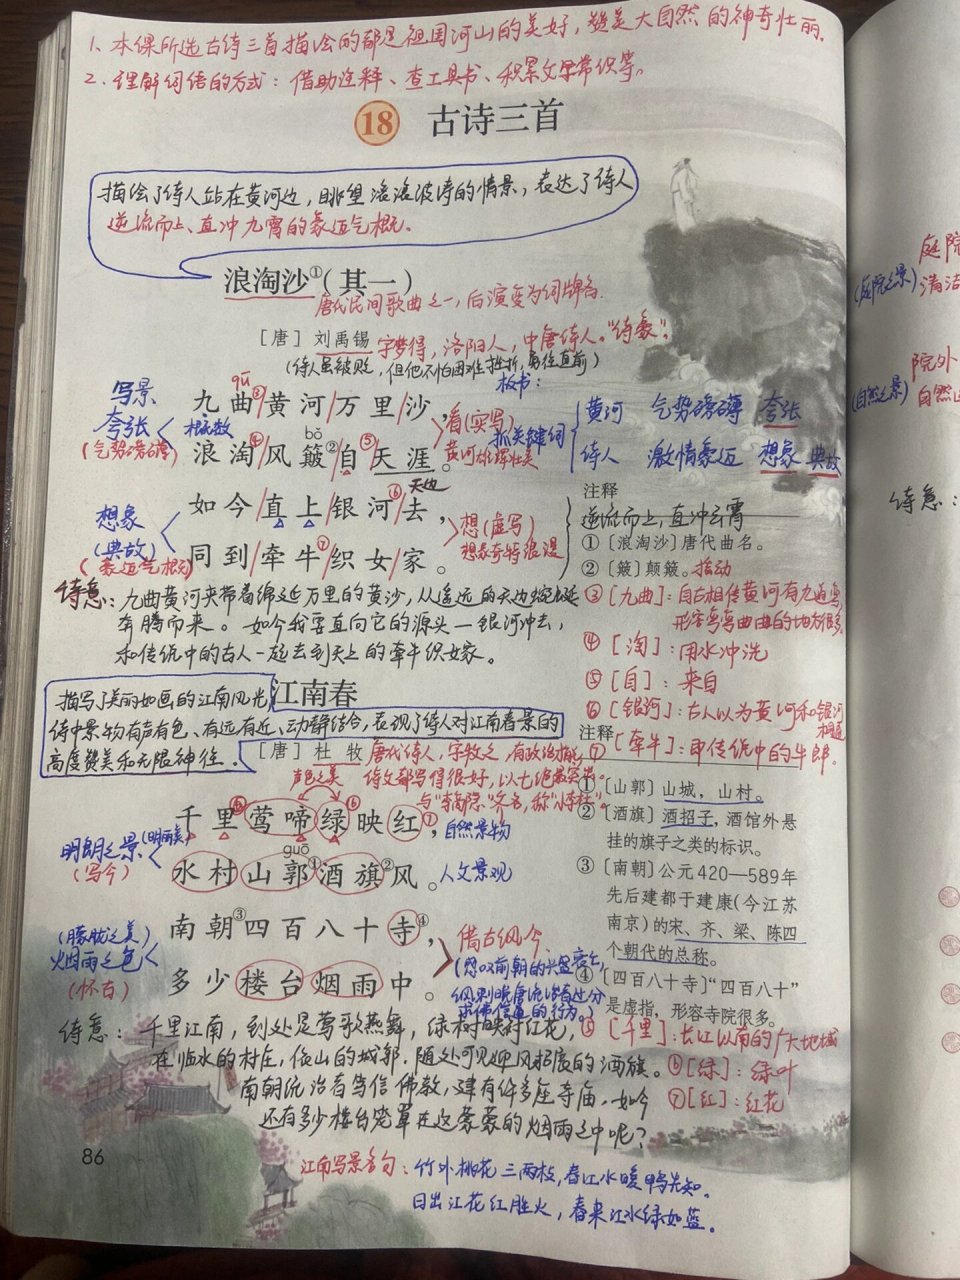 1、本课所选古诗三首描绘的都是祖国河山的美好，赞美大自然的神奇壮丽。
2、理解词语的方式：借助注释、查工具书、积累文学常识等。
18 古诗三首
描绘了诗人站在黄河边，眺望滚滚波涛的情景，表达了诗人
逆流而上、直冲九霄的豪迈气概。
浪淘沙①(其一)
唐代民间歌曲之一，后演变为词牌名
[唐] 刘禹锡 字梦得，洛阳人，中唐诗人。"诗豪"。
(诗人虽被贬，但他不怕困难挫折，勇往直前)
写景
夸张
(气势磅礴)
qū
九曲③黄河万里沙，
概数
bǒ
浪淘④风簸②自⑤天涯。
看(实写)
黄河雄浑壮美
抓关键词
板书：
黄河 气势磅礴 夸张
诗人 激情豪迈 想象 典故
逆流而上，直冲云霄
想象
(典故)
(豪迈气概)
天边
如今直上银河⑥去，
同到牵牛⑦织女家。
想(虚写)
想象奇特浪漫
诗意：九曲黄河夹带着绵延万里的黄沙，从遥远的天边蜿蜒
奔腾而来。如今我要直向它的源头—银河冲去，
和传说中的古人一起去到天上的牵牛织女家。
注释
①〔浪淘沙〕唐代曲名。
②〔簸〕颠簸。摇动
③[九曲]：自古相传黄河有九道弯
形容弯弯曲曲的地方很多
④[淘]：用水冲洗
⑤[自]：来自
⑥[银河]：古人以为黄河和银河
相通
⑦[牵牛]：即传说中的牛郎。
描写了美丽如画的江南风光，
诗中景物有声有色、有远有近、动静结合，表现了诗人对江南春景的
高度赞美和无限神往。
江南春
[唐] 杜牧 唐代诗人，字牧之，有政治才能，
诗文都写得很好，以七绝最突出。
与"李商隐"齐名，称"小李杜"。
声色之美
明朗之景(明丽美)
(写今)
千里⑤莺啼绿⑥映红⑦，
自然景物
guō
水村山郭①酒旗②风。
人文景观
(朦胧之美)
烟雨之色
(怀古)
南朝③四百八十寺④，
多少楼台烟雨中。
借古讽今
(感叹前朝的兴盛衰亡，
讽刺晚唐统治者过分
求佛信道的行为。)
诗意：千里江南，到处是莺歌燕舞，绿树映衬红花，
在临水的村庄，依山的城郭，随处可见迎风招展的酒旗。
南朝统治者笃信佛教，建有许多座寺庙。如今
还有多少楼台笼罩在这蒙蒙的烟雨之中呢？
注释
①〔山郭〕山城，山村。
②〔酒旗〕酒招子，酒馆外悬
挂的旗子之类的标识。
③〔南朝〕公元420—589年
先后建都于建康(今江苏
南京)的宋、齐、梁、陈四
个朝代的总称。
④〔四百八十寺〕"四百八十"
是虚指，形容寺院很多。
⑤[千里]：长江以南的广大地域
⑥[绿]：绿叶
⑦[红]：红花
86
江南写景名句：竹外桃花三两枝，春江水暖鸭先知。
日出江花红胜火，春来江水绿如蓝。
庭院
(庭院之景)
清洁
院外
(自然之景)
自然
诗意：